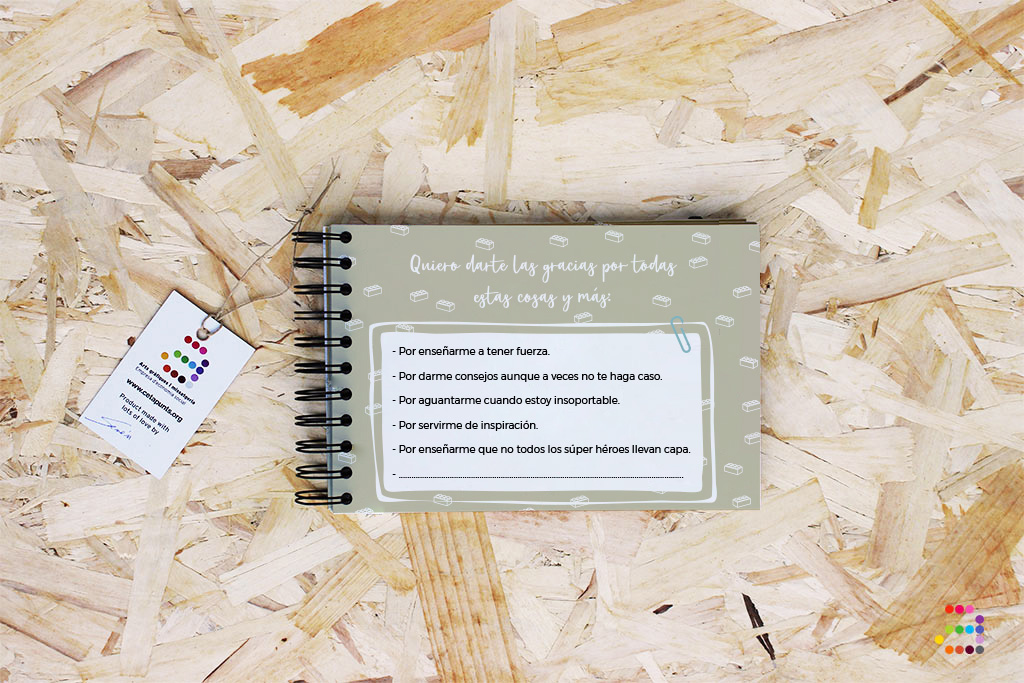 Quiero darte las gracias por todas
estas cosas y más:
- Por enseñarme a tener fuerza.
- Por darme consejos aunque a veces no te haga caso.
- Por aguantarme cuando estoy insoportable.
- Por servirme de inspiración.
- Por enseñarme que no todos los súper héroes llevan capa.
Arts gràfiques i missatgeria
Empresa d'economia social
www.cetapunts.org
Product made with
lots of love by